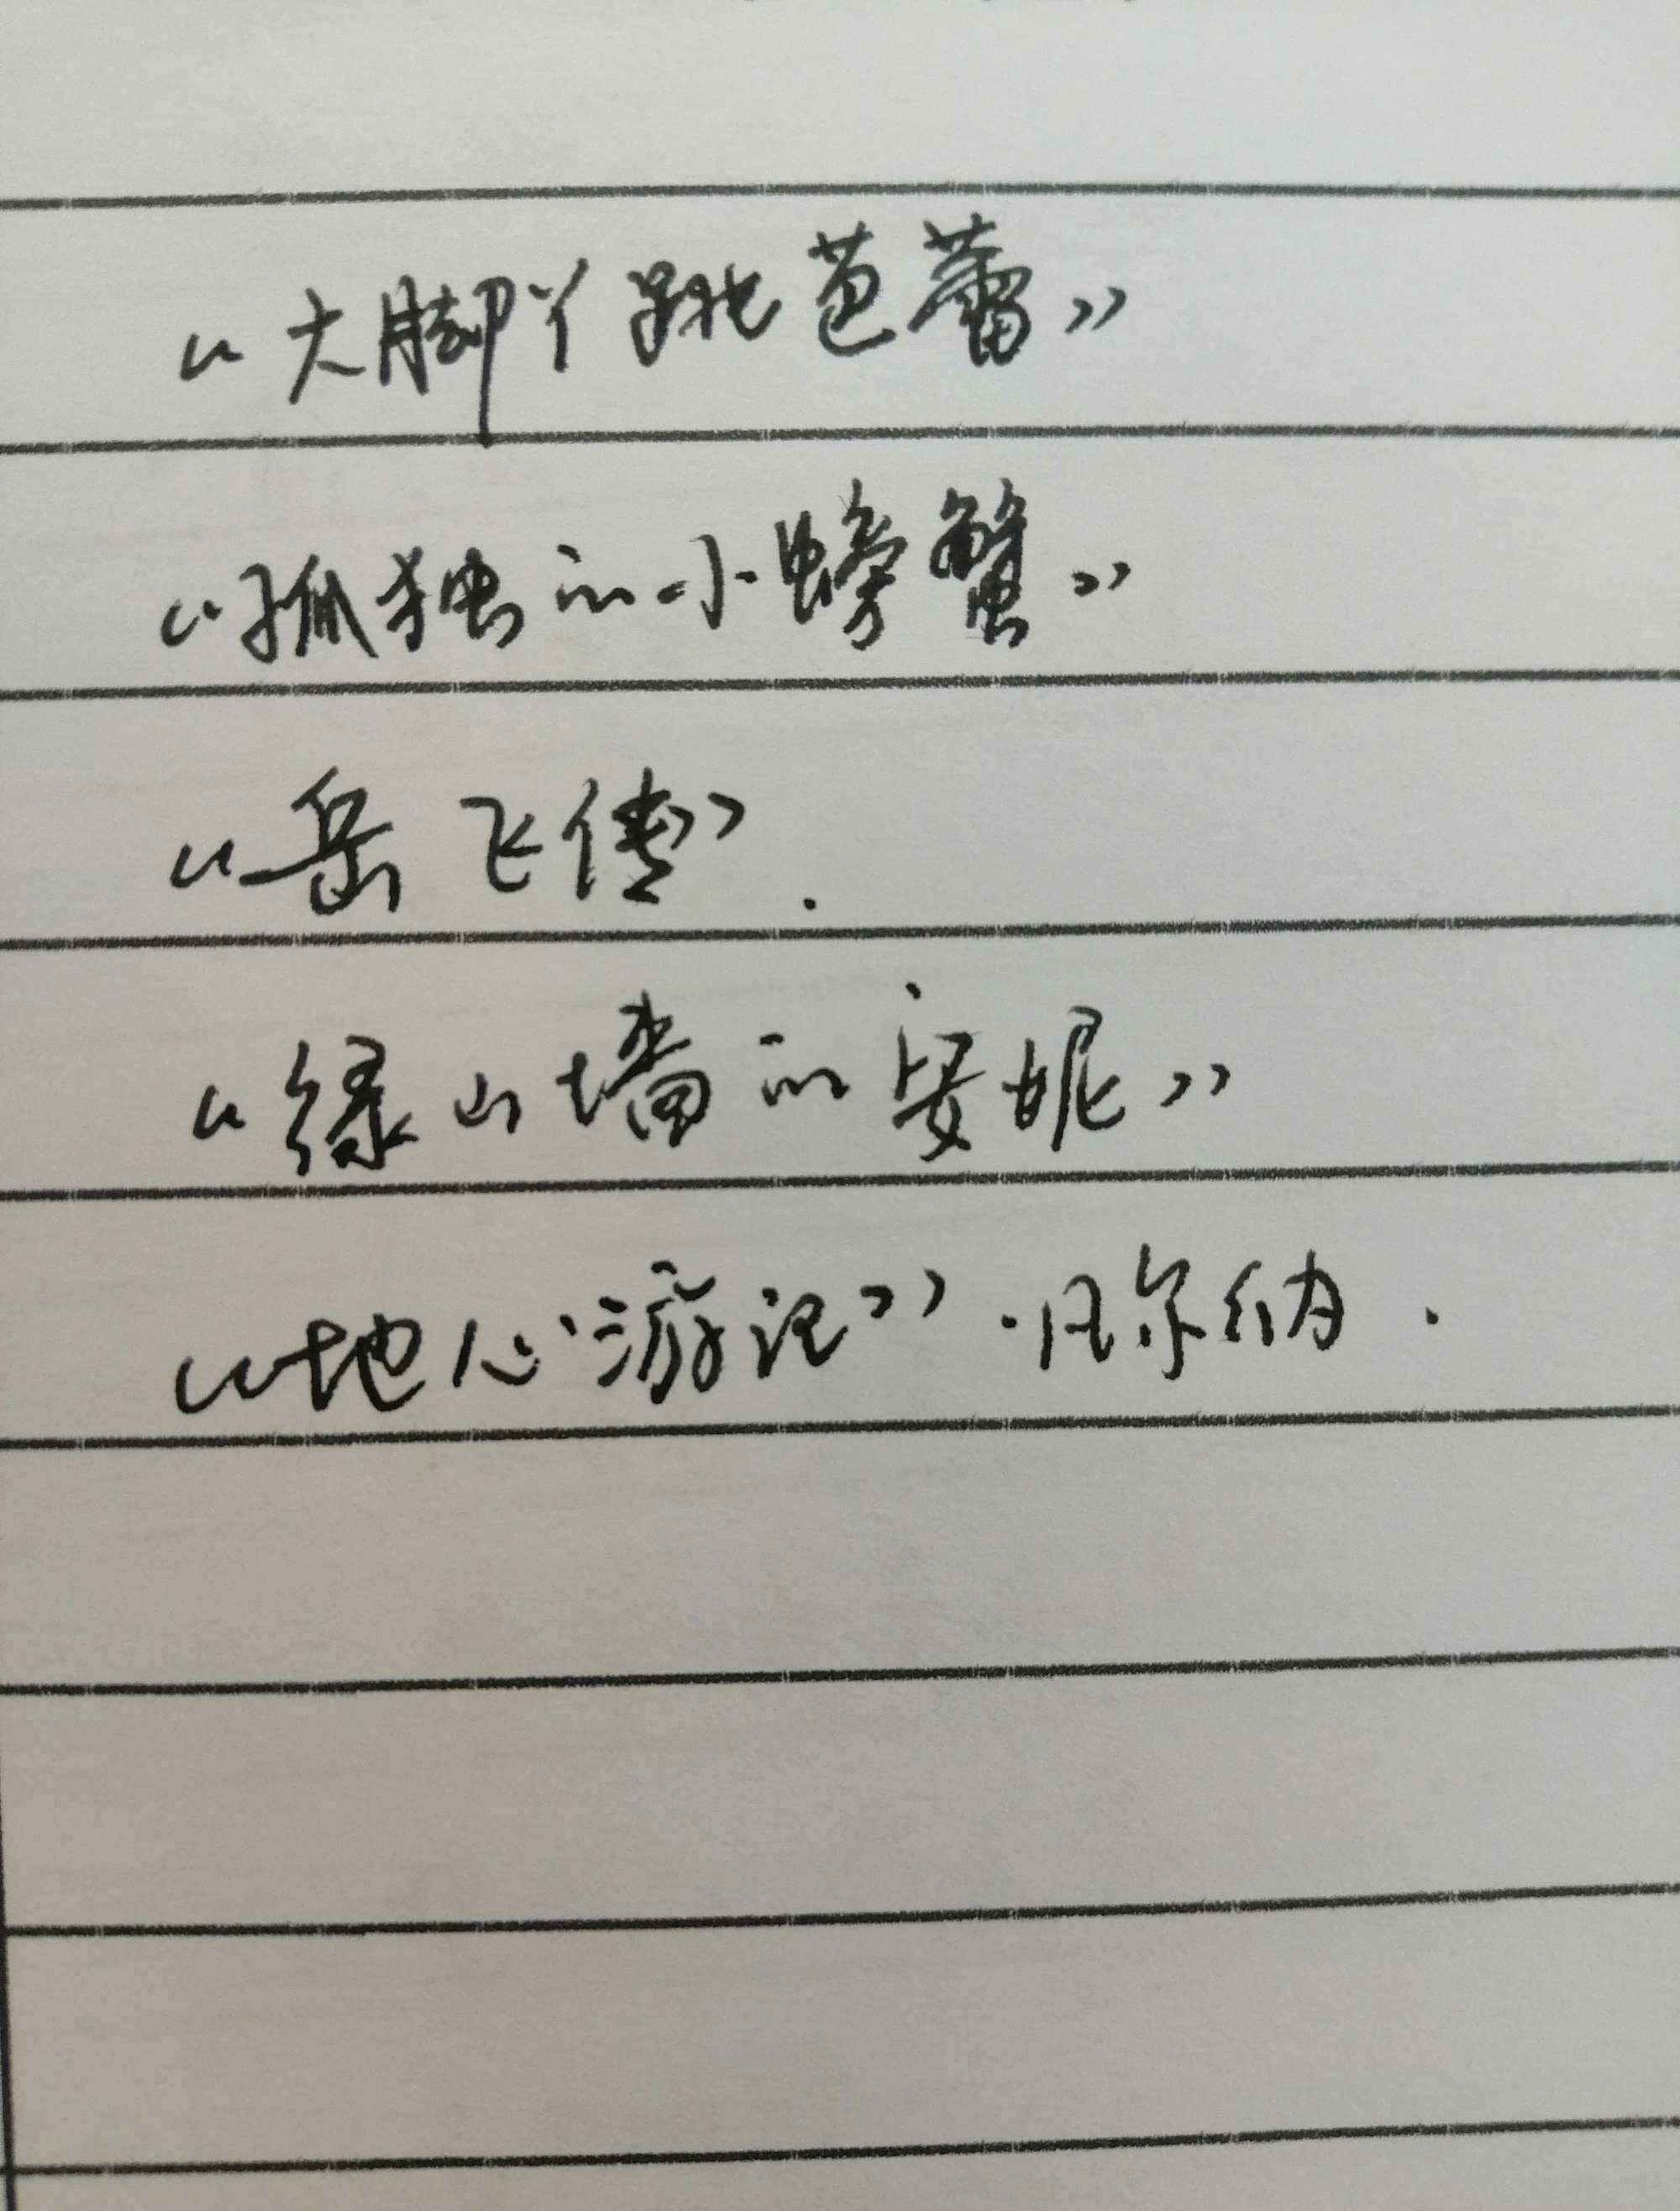 《大脚丫跳芭蕾》
《孤独的小螃蟹》
《岳飞传》.
《绿山墙的安妮》
《地心游记》·凡尔纳.